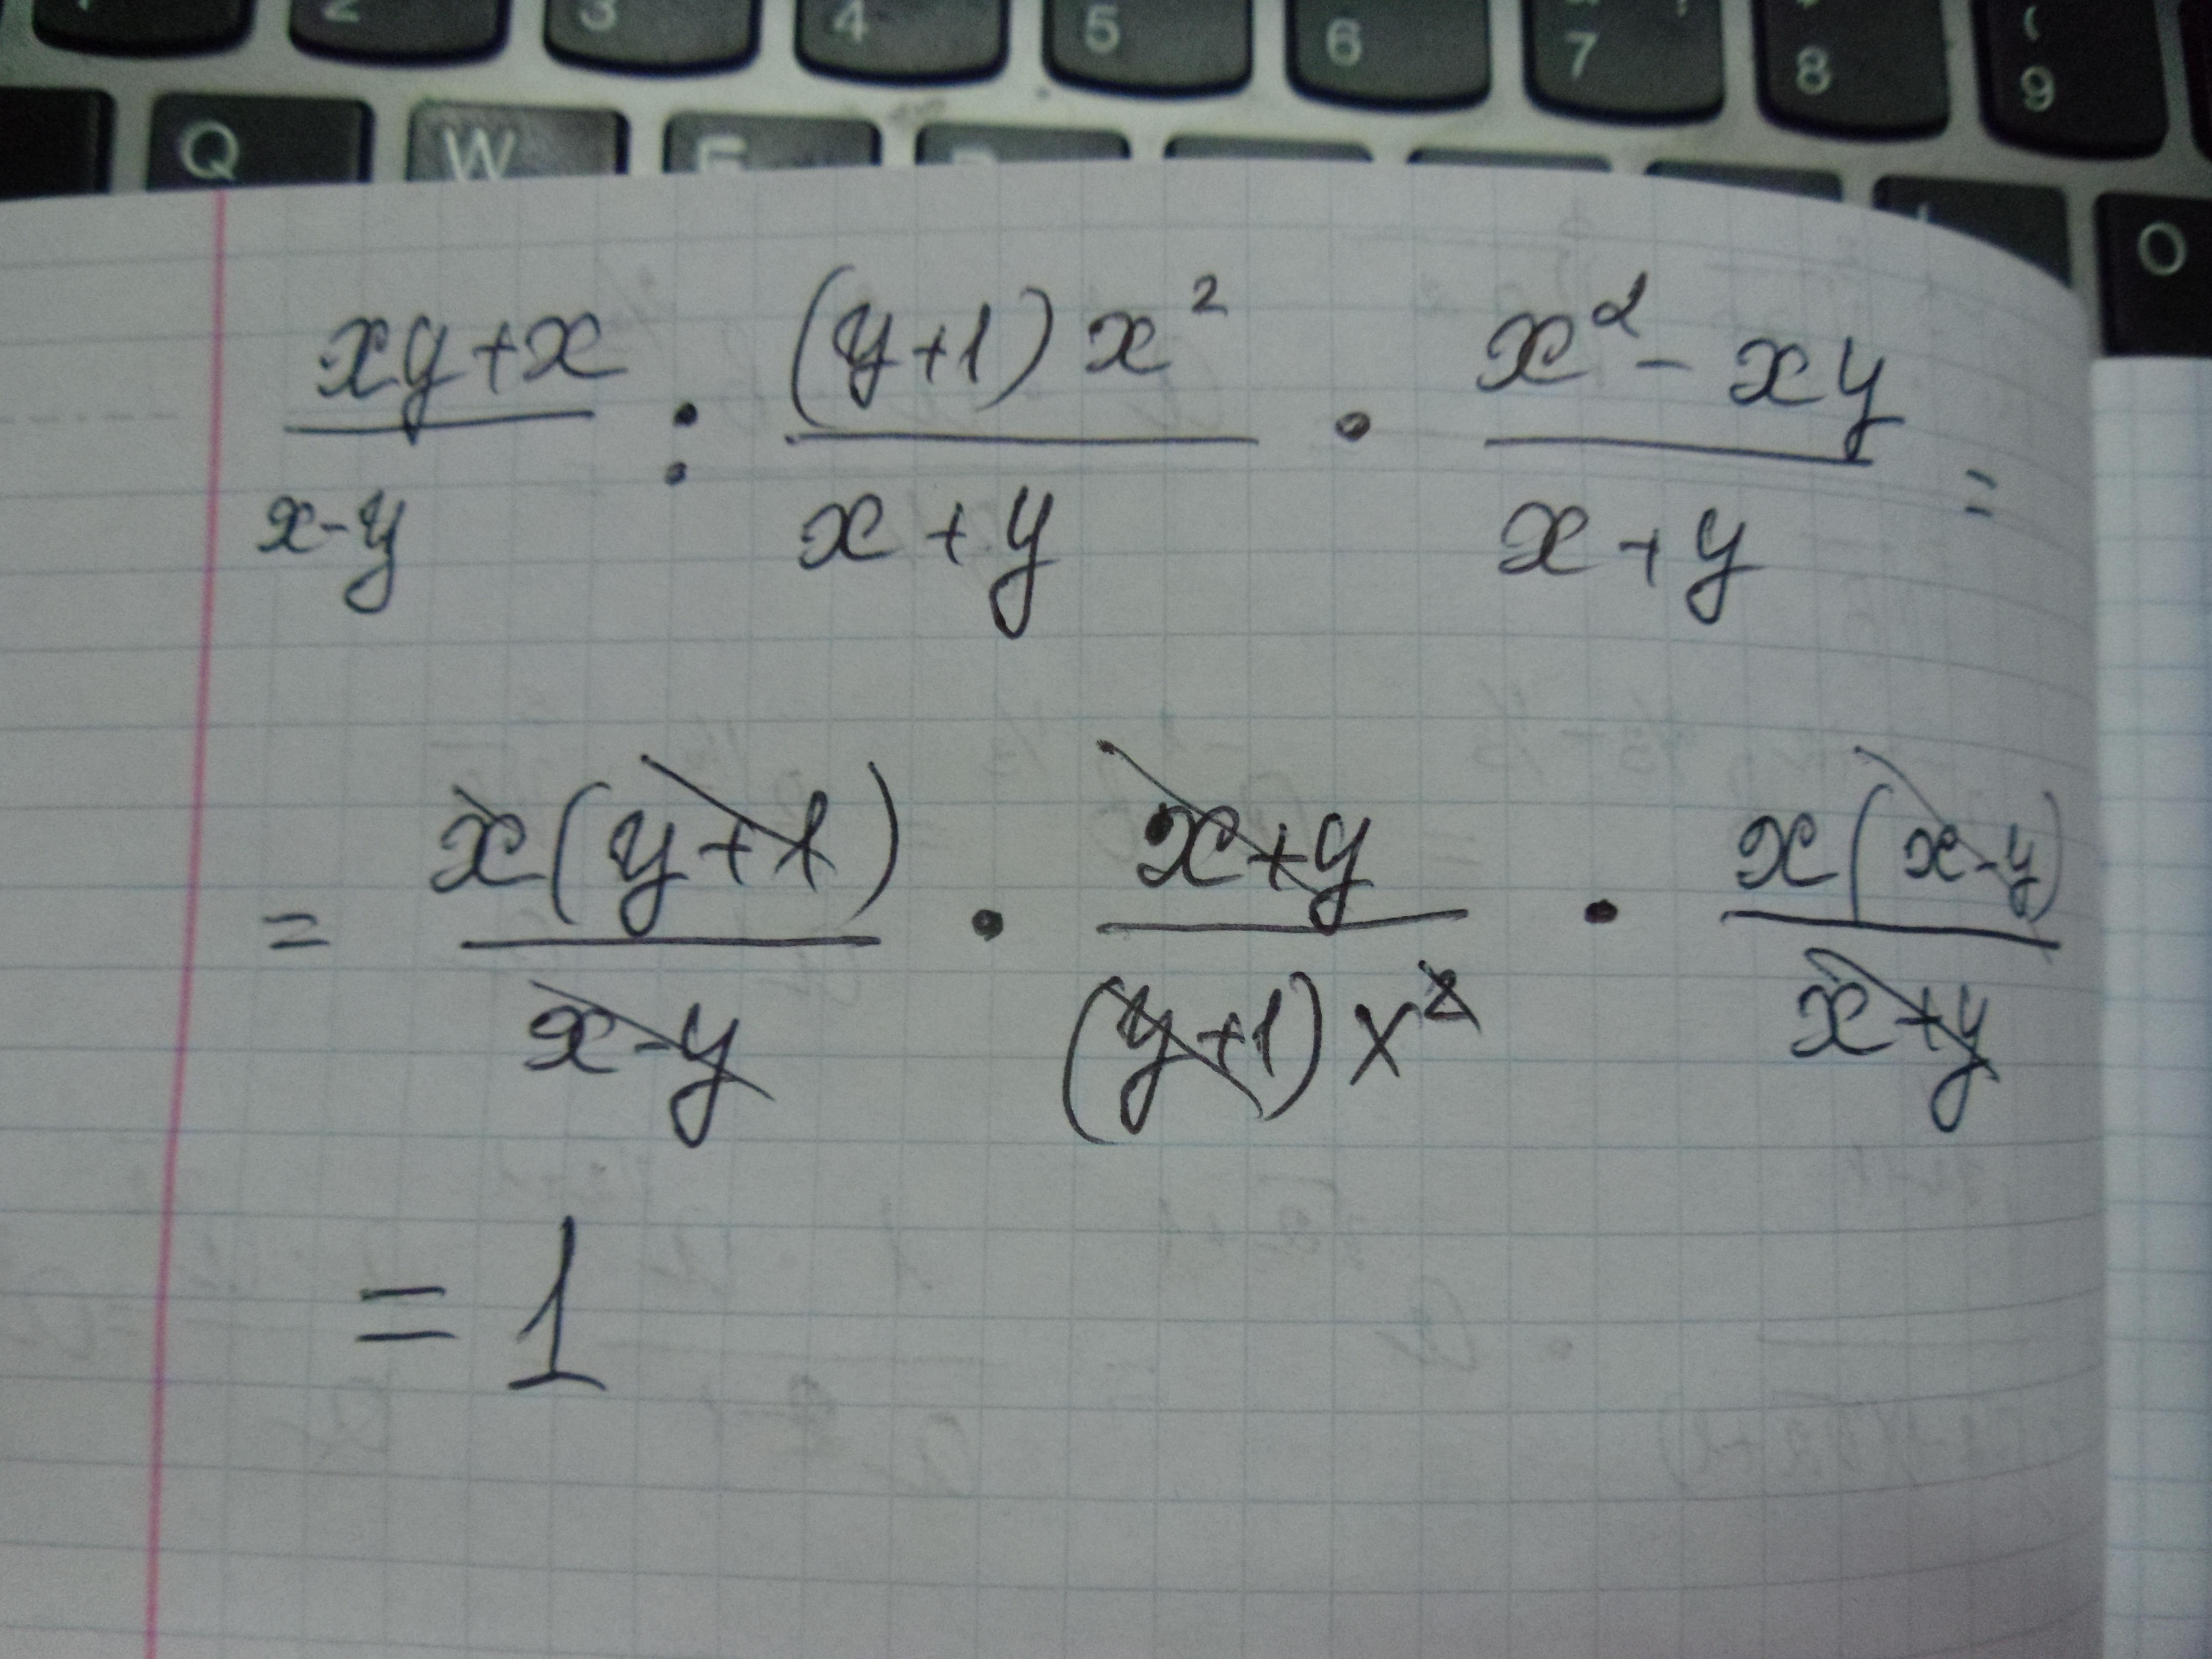 1 2 3 4 5 6 7 8 9
Q W E O
(xy+x)/(x-y) : ((y+1)x²)/(x+y) · (x²-xy)/(x+y) =
= (x(y+1))/(x-y) · (x+y)/((y+1)x²) · (x(x-y))/(x+y)
= 1